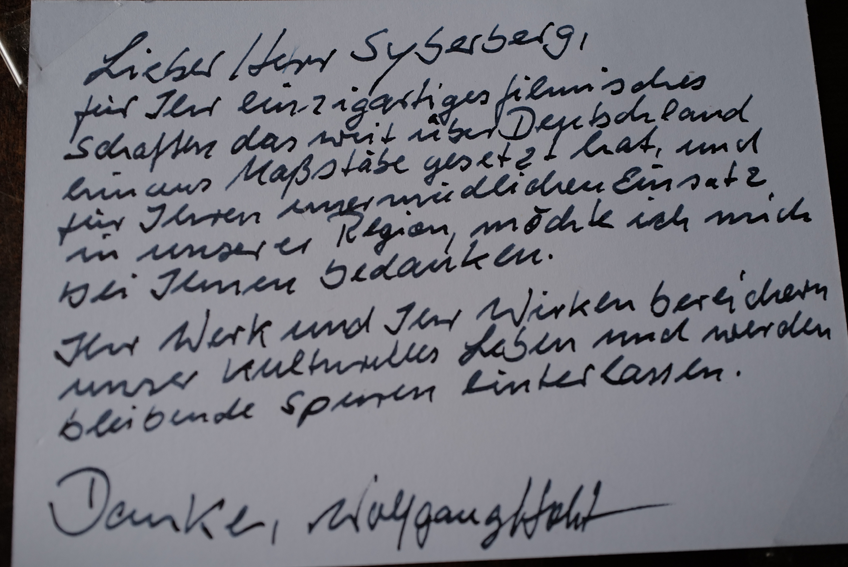 Lieber Herr Syberberg,
für Ihr einzigartiges filmisches
Schaffen das weit über Deutschland
hinaus Maßstäbe gesetzt hat, und
für Ihren unermüdlichen Einsatz
in unserer Region, möchte ich mich
bei Ihnen bedanken.
Ihr Werk und Ihr Wirken bereichern
unser kulturelles Leben und werden
bleibende Spuren hinterlassen.
Danke, Wolfgang